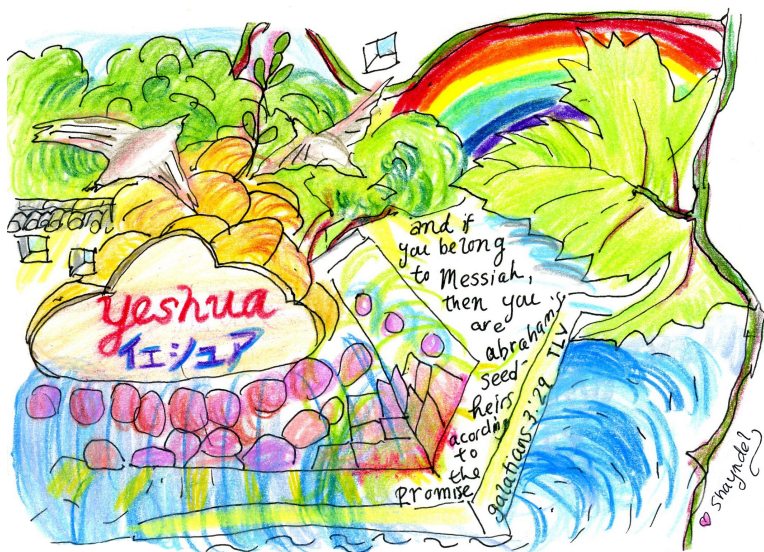 yeshua
イエシュア
and if
you belong
to Messiah,
then you
are
abraham's
seed-
heirs
acording
to
the
Promise
galatians 3:29 TLV
shayndel